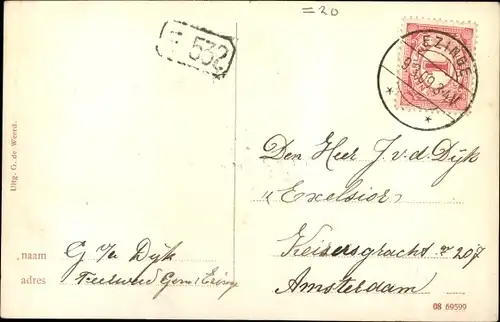 =20
F 532
EZINGE
1
Den Heer J. v. d. Dijk
"Excelsior"
Keizersgracht 207
Amsterdam
Uitg. G. de Weerd.
naam G v/d Dijk
adres Feerwerd Gem: Ezinge
08 69599